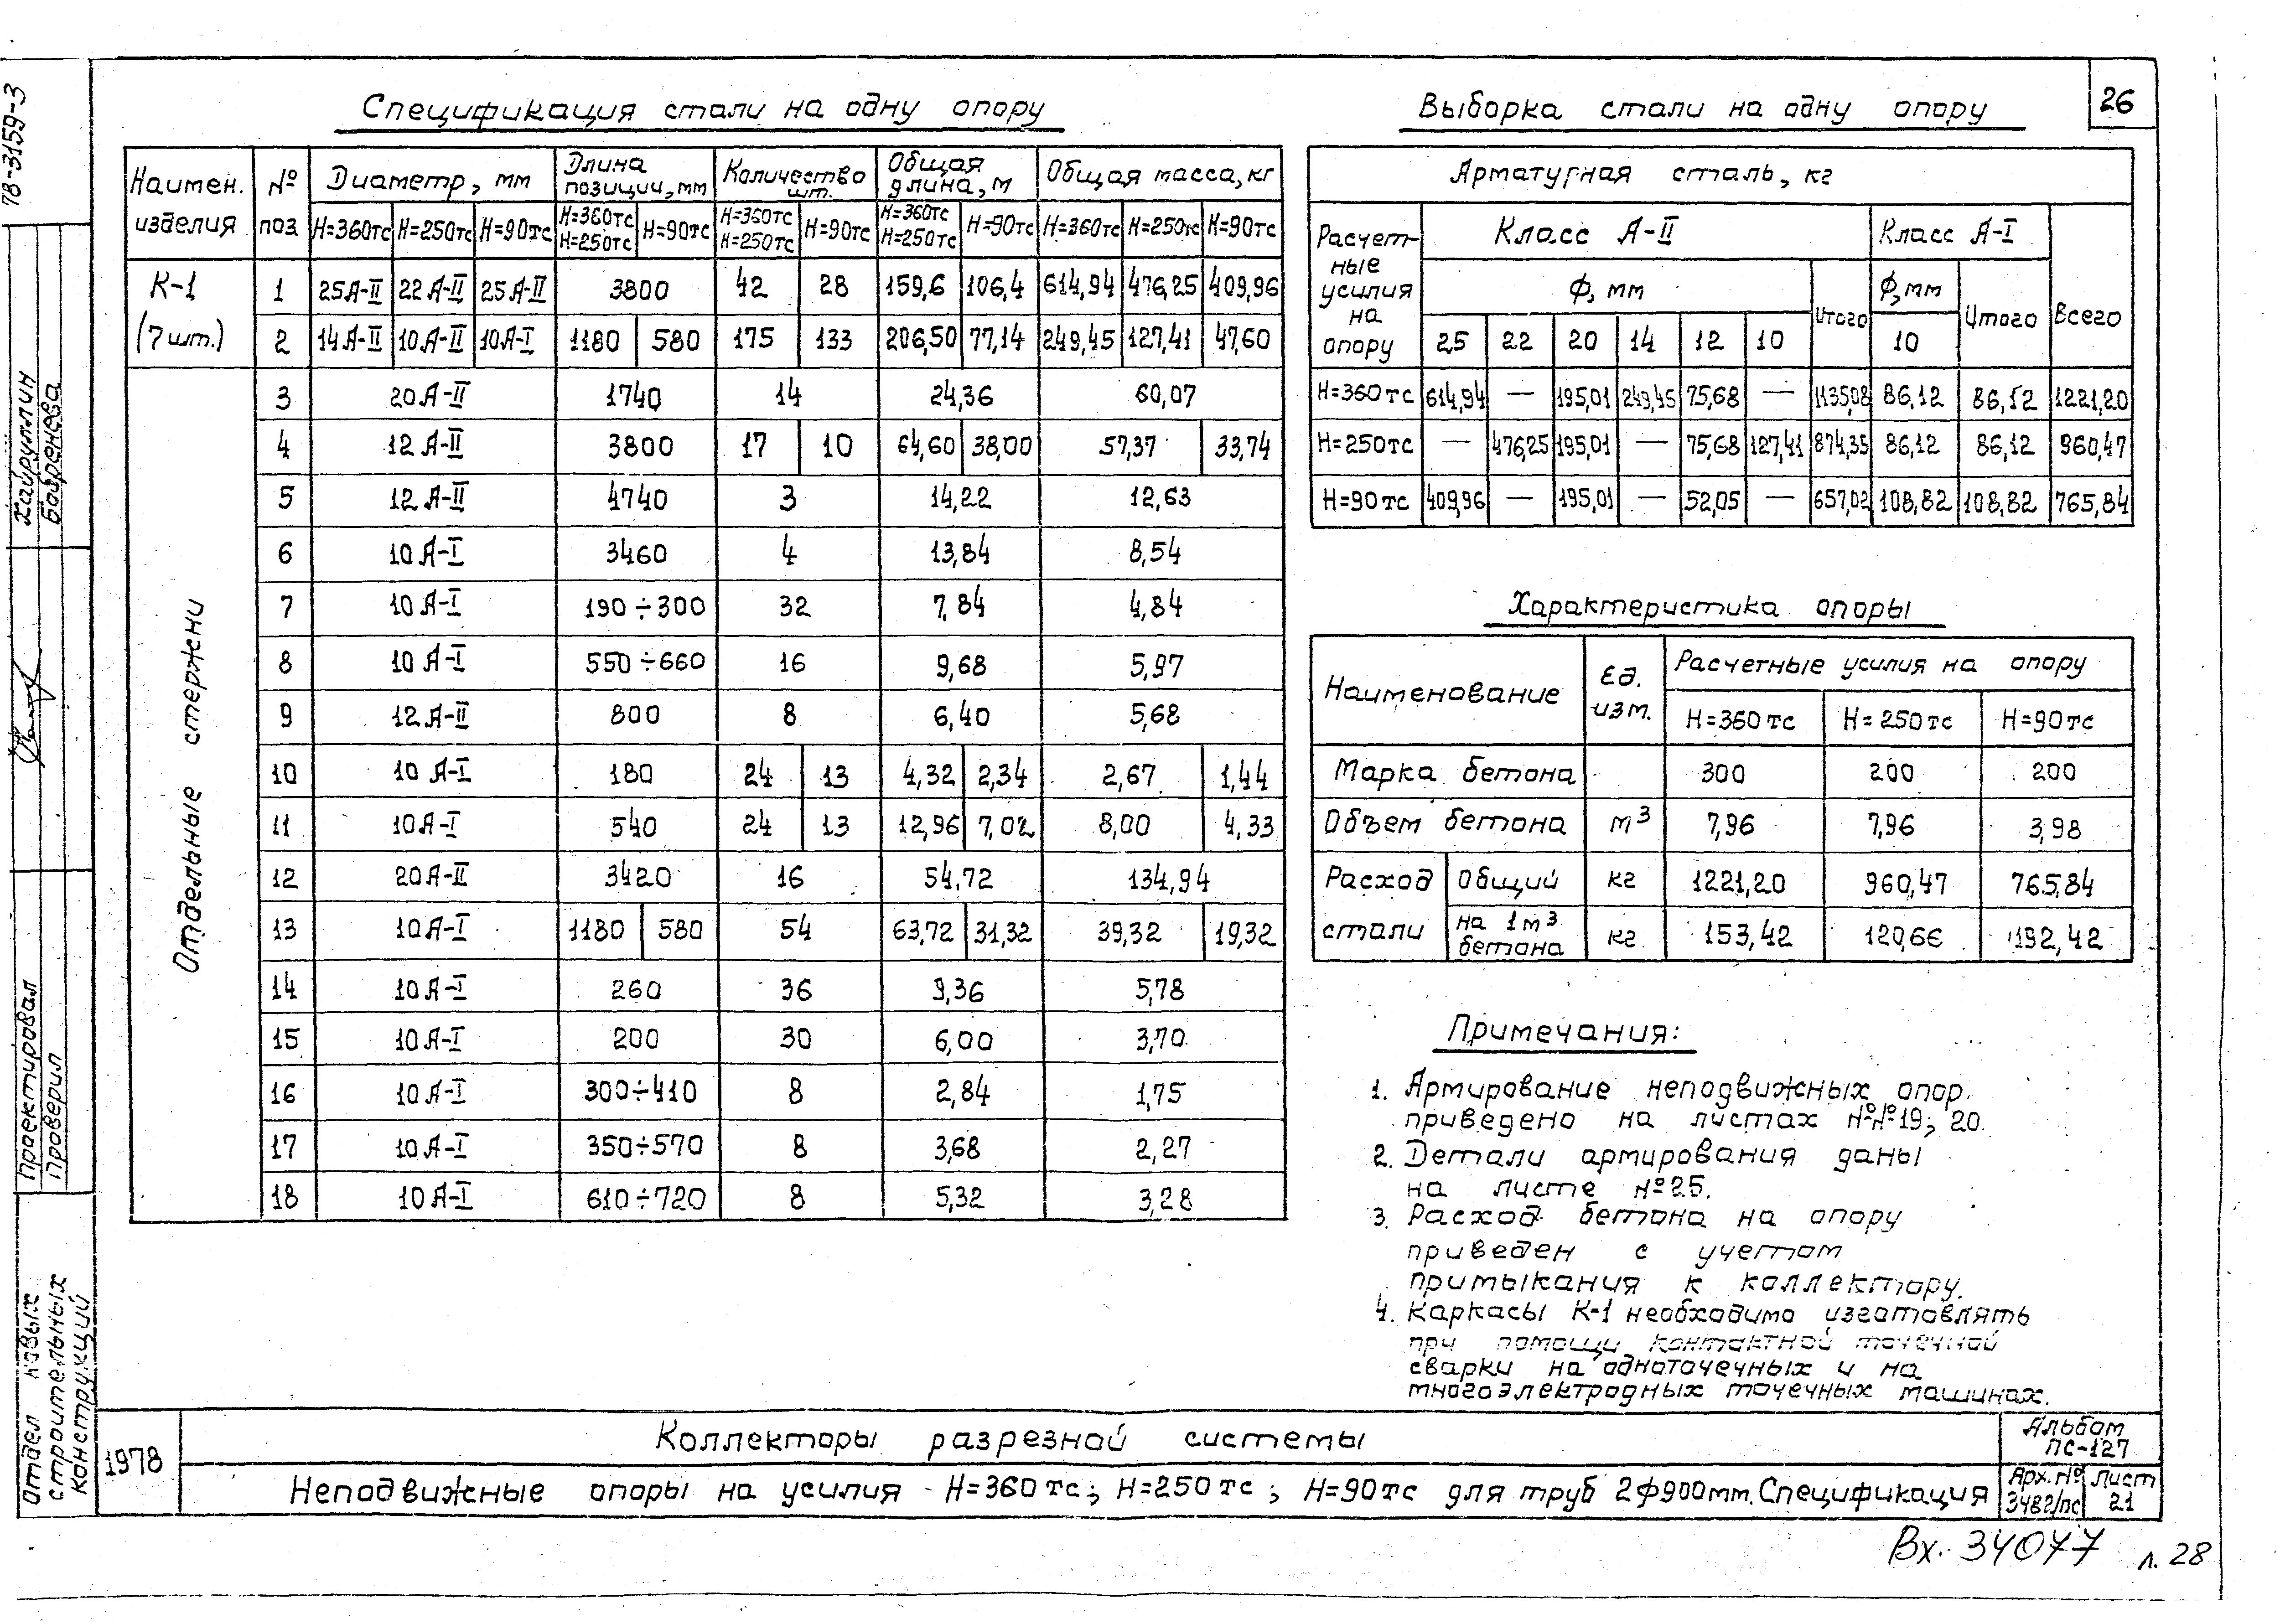 78-3159-3
26
Спецификация стали на одну опору
Наимен. изделия | № поз | Диаметр, мм | Длина позиции, мм | Количество шт. | Общая длина, м | Общая масса, кг
Н=360тс | Н=250тс | Н=90тс | Н=360тс Н=250тс | Н=90тс | Н=360тс Н=250тс | Н=90тс | Н=360тс Н=250тс | Н=90тс | Н=360тс | Н=250тс | Н=90тс
К-1 (7шт.) | 1 | 25А-II | 22А-II | 25А-II | 3800 | 42 | 28 | 159,6 | 106,4 | 614,94 | 476,25 | 409,96
2 | 14А-II | 10А-II | 10А-I | 1180 | 580 | 175 | 133 | 206,50 | 77,14 | 249,45 | 127,41 | 47,60
Отдельные стержни
3 | 20А-II | 1740 | 14 | 24,36 | 60,07
4 | 12А-II | 3800 | 17 | 10 | 64,60 | 38,00 | 57,37 | 33,74
5 | 12А-II | 4740 | 3 | 14,22 | 12,63
6 | 10А-I | 3460 | 4 | 13,84 | 8,54
7 | 10А-I | 190÷300 | 32 | 7,84 | 4,84
8 | 10А-I | 550÷660 | 16 | 9,68 | 5,97
9 | 12А-II | 800 | 8 | 6,40 | 5,68
10 | 10А-I | 180 | 24 | 13 | 4,32 | 2,34 | 2,67 | 1,44
11 | 10А-I | 540 | 24 | 13 | 12,96 | 7,02 | 8,00 | 4,33
12 | 20А-II | 3420 | 16 | 54,72 | 134,94
13 | 10А-I | 1180 | 580 | 54 | 63,72 | 31,32 | 39,32 | 19,32
14 | 10А-I | 260 | 36 | 9,36 | 5,78
15 | 10А-I | 200 | 30 | 6,00 | 3,70
16 | 10А-I | 300÷410 | 8 | 2,84 | 1,75
17 | 10А-I | 350÷570 | 8 | 3,68 | 2,27
18 | 10А-I | 610÷720 | 8 | 5,32 | 3,28
Выборка стали на одну опору
Арматурная сталь, кг
Расчетные усилия на опору | Класс А-II | Класс А-I | Всего
ф, мм | Итого | ф, мм | Итого
25 | 22 | 20 | 14 | 12 | 10 | 10
Н=360тс | 614,94 | — | 195,01 | 249,45 | 75,68 | — | 1135,08 | 86,12 | 86,12 | 1221,20
Н=250тс | — | 476,25 | 195,01 | — | 75,68 | 127,41 | 874,35 | 86,12 | 86,12 | 960,47
Н=90тс | 409,96 | — | 195,01 | — | 52,05 | — | 657,02 | 108,82 | 108,82 | 765,84
Характеристика опоры
Наименование | Ед. изм. | Расчетные усилия на опору
Н=360тс | Н=250тс | Н=90тс
Марка бетона | 300 | 200 | 200
Объем бетона | м³ | 7,96 | 7,96 | 3,98
Расход стали | Общий | кг | 1221,20 | 960,47 | 765,84
на 1м³ бетона | кг | 153,42 | 120,66 | 192,42
Примечания:
1. Армирование неподвижных опор
приведено на листах №№19; 20.
2. Детали армирования даны
на листе №25.
3. Расход бетона на опору
приведен с учетом
примыкания к коллектору.
4. Каркасы К-1 необходимо изготовлять
при помощи контактной точечной
сварки на одноточечных и на
многоэлектродных точечных машинах.
Хайруллин
Бобренева
Проектировал
Проверил
Отдел новых
строительных
конструкций
1978
Коллекторы разрезной системы
Неподвижные опоры на усилия Н=360тс; Н=250тс; Н=90тс для труб 2ф900мм. Спецификация
Альбом
ПС-127
Арх. № | Лист
3482/пс | 21
Вх. 34077 л. 28